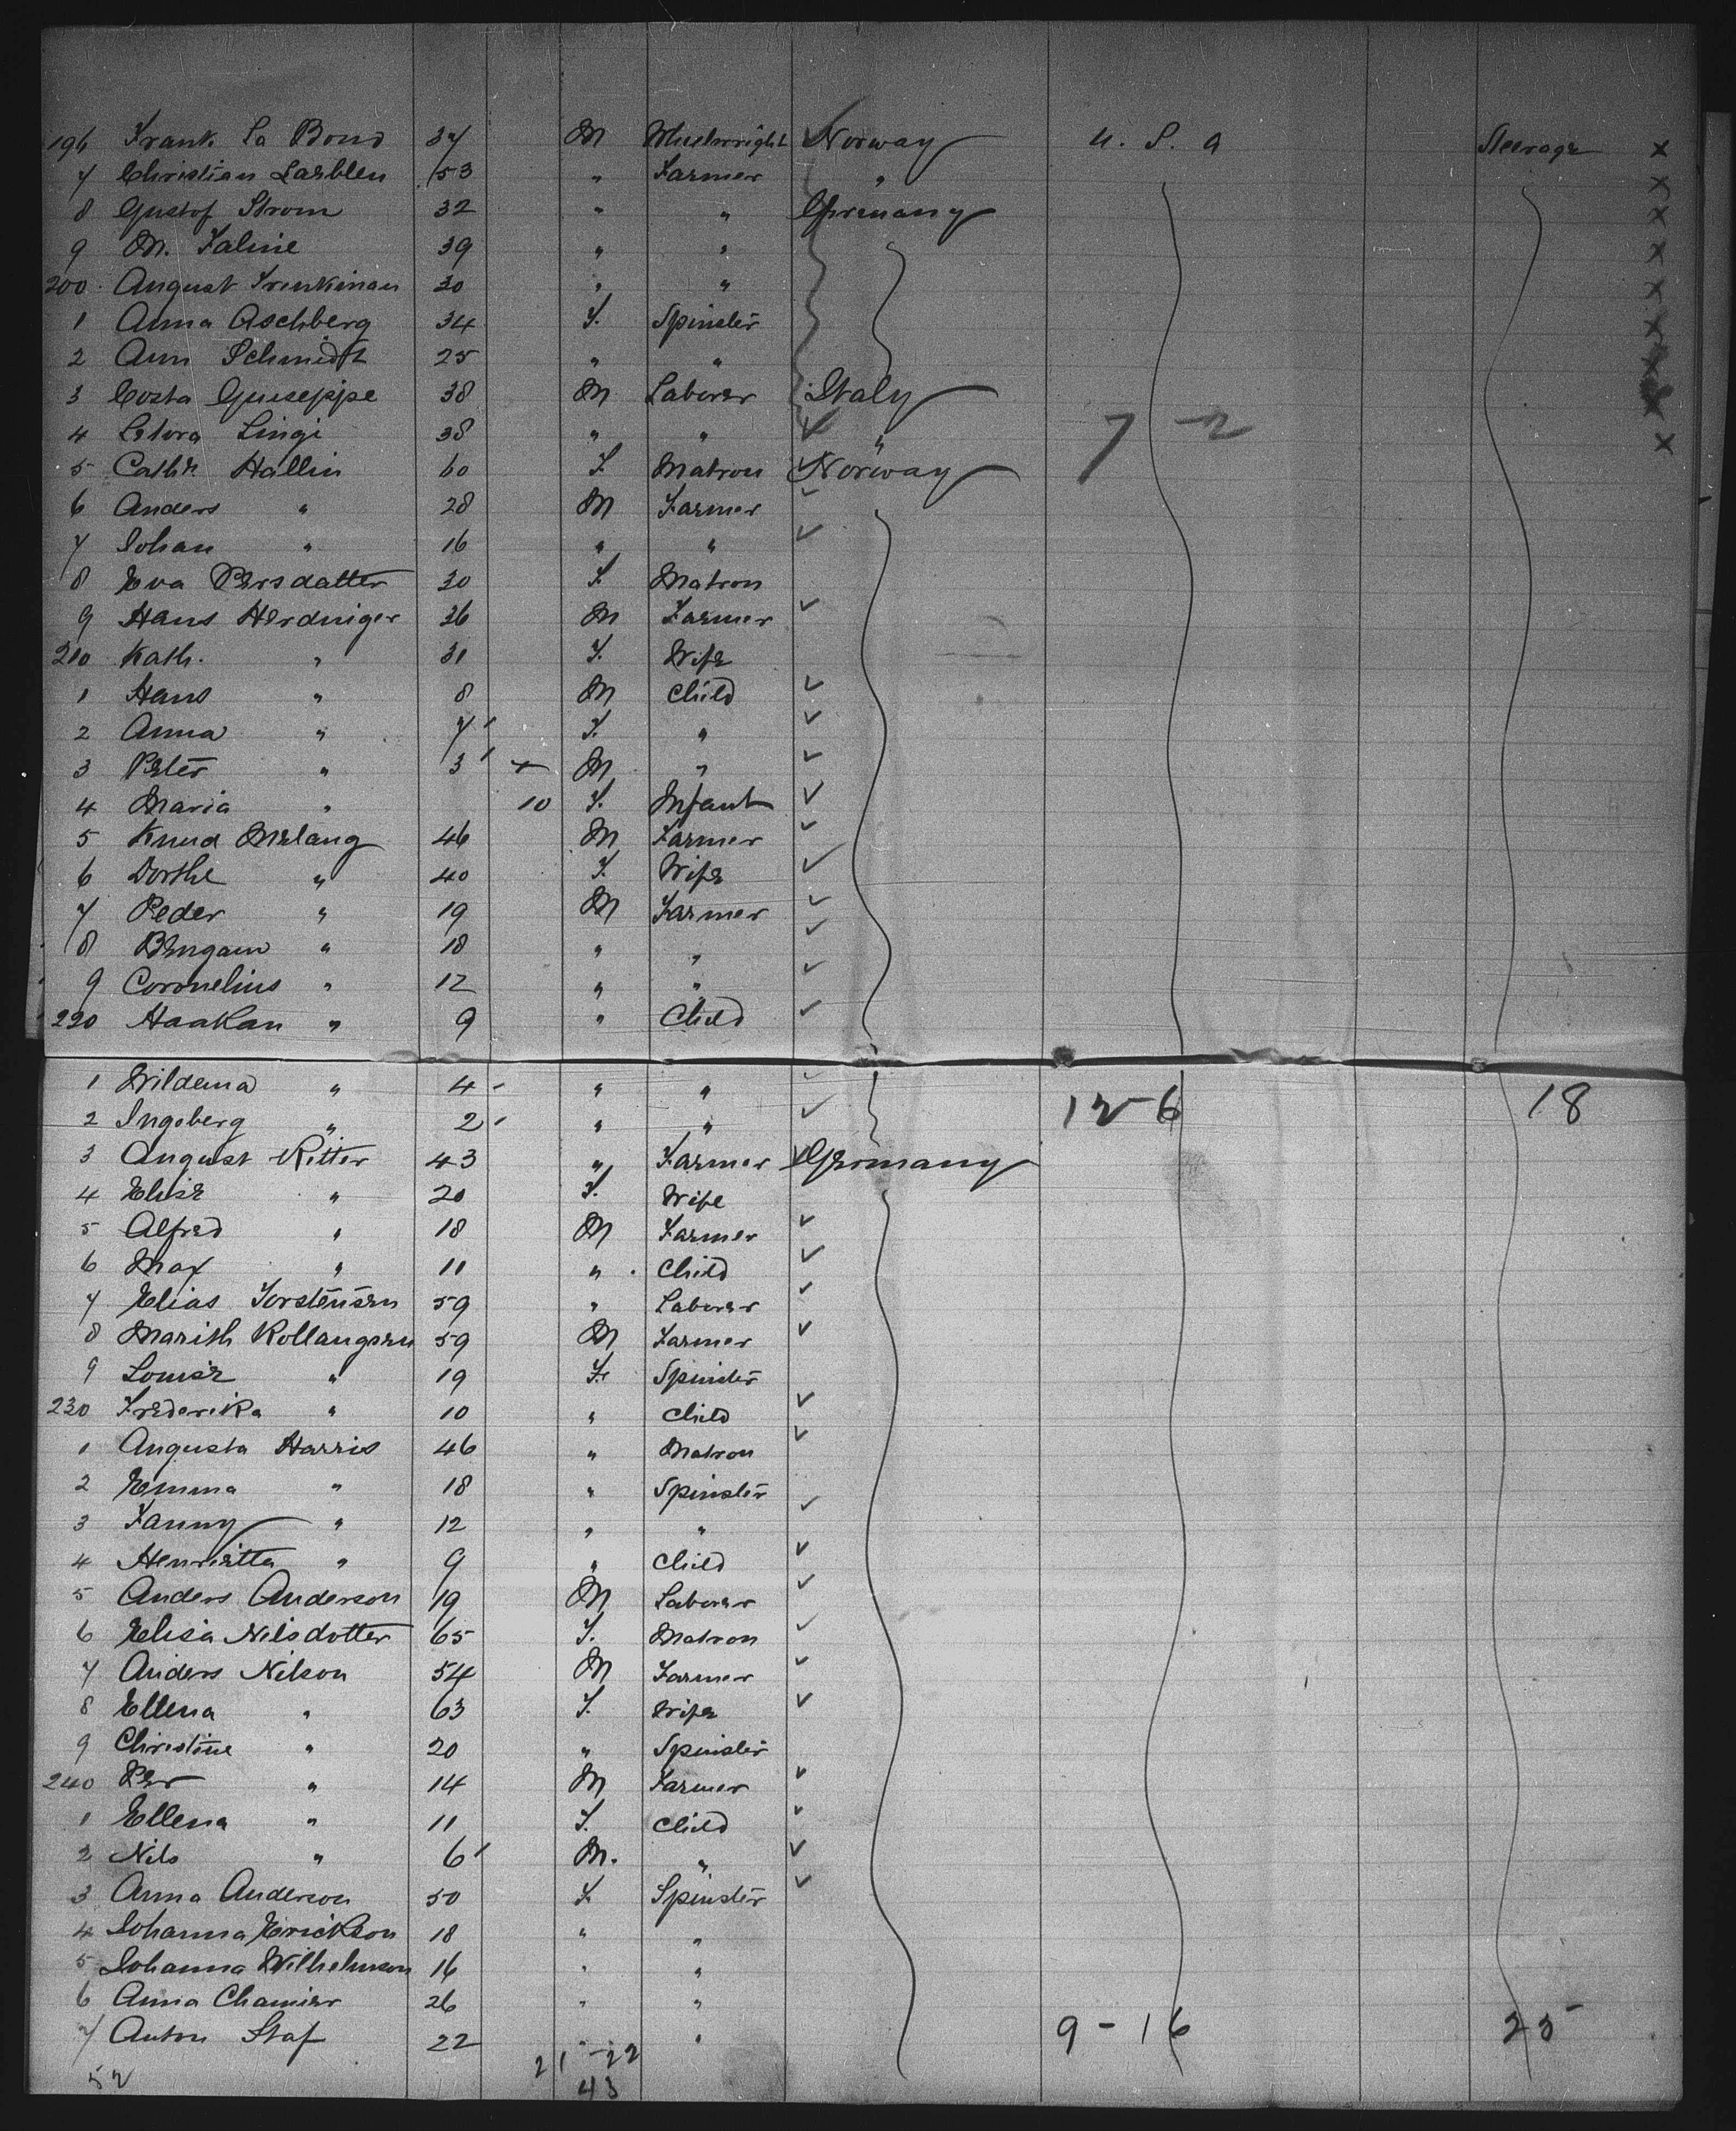 196 Frank La Bond 37 M Wheelwright Norway U. S. A Steerage x
7 Christian Larblen 53 " Farmer " x
8 Gustof Strom 32 " " Germany x
9 M. Faline 39 " " x
200 August Trenkman 30 " " x
1 Anna Aschberg 34 F. Spinster x
2 Ann Schmidt 25 " " x
3 Costa Guiseppe 38 M Laborer Italy x
4 Letora Lingi 38 " " " 7 - 2 x
5 Cath. Hallin 60 F. Matron Norway
6 Anders " 28 M Farmer
7 Johan " 16 " "
8 Eva Persdatter 30 F. Matron
9 Hans Herdniger 36 M Farmer
210 Kath. " 31 F. Wife
1 Hans " 8 M Child
2 Anna " 7 F. "
3 Peter " 3 M "
4 Maria " 10 F. Infant
5 Knud Melang 46 M Farmer
6 Dorthe " 40 F. Wife
7 Peder " 19 M Farmer
8 Bengam " 18 " "
9 Coronelius " 12 " "
220 Haakan " 9 " Child
1 Wildema " 4 " " 12-6 18
2 Ingoberg " 2 " "
3 August Ritter 43 " Farmer Germany
4 Elise " 20 F. Wife
5 Alfred " 18 M Farmer
6 Max " 11 " Child
7 Elias Torstensen 59 " Laborer
8 Marith Rollangsen 59 M Farmer
9 Louise " 19 F. Spinster
230 Frederika " 10 " Child
1 Augusta Harris 46 " Matron
2 Emma " 18 " Spinster
3 Fanny " 12 " "
4 Henrietta " 9 " Child
5 Anders Anderson 19 M Laborer
6 Elisa Nilsdotter 65 F. Matron
7 Anders Nilson 54 M Farmer
8 Ellena " 63 F. Wife
9 Christine " 20 " Spinster
240 Per " 14 M Farmer
1 Ellena " 11 F. Child
2 Nils " 6 M. "
3 Anna Anderson 50 F. Spinster
4 Johanna Erickson 18 " "
5 Johanna Wilhelmson 16 " "
6 Anna Chamier 26 " "
7 Anton Staf 22 " " 9-16 25
52 21-22
43